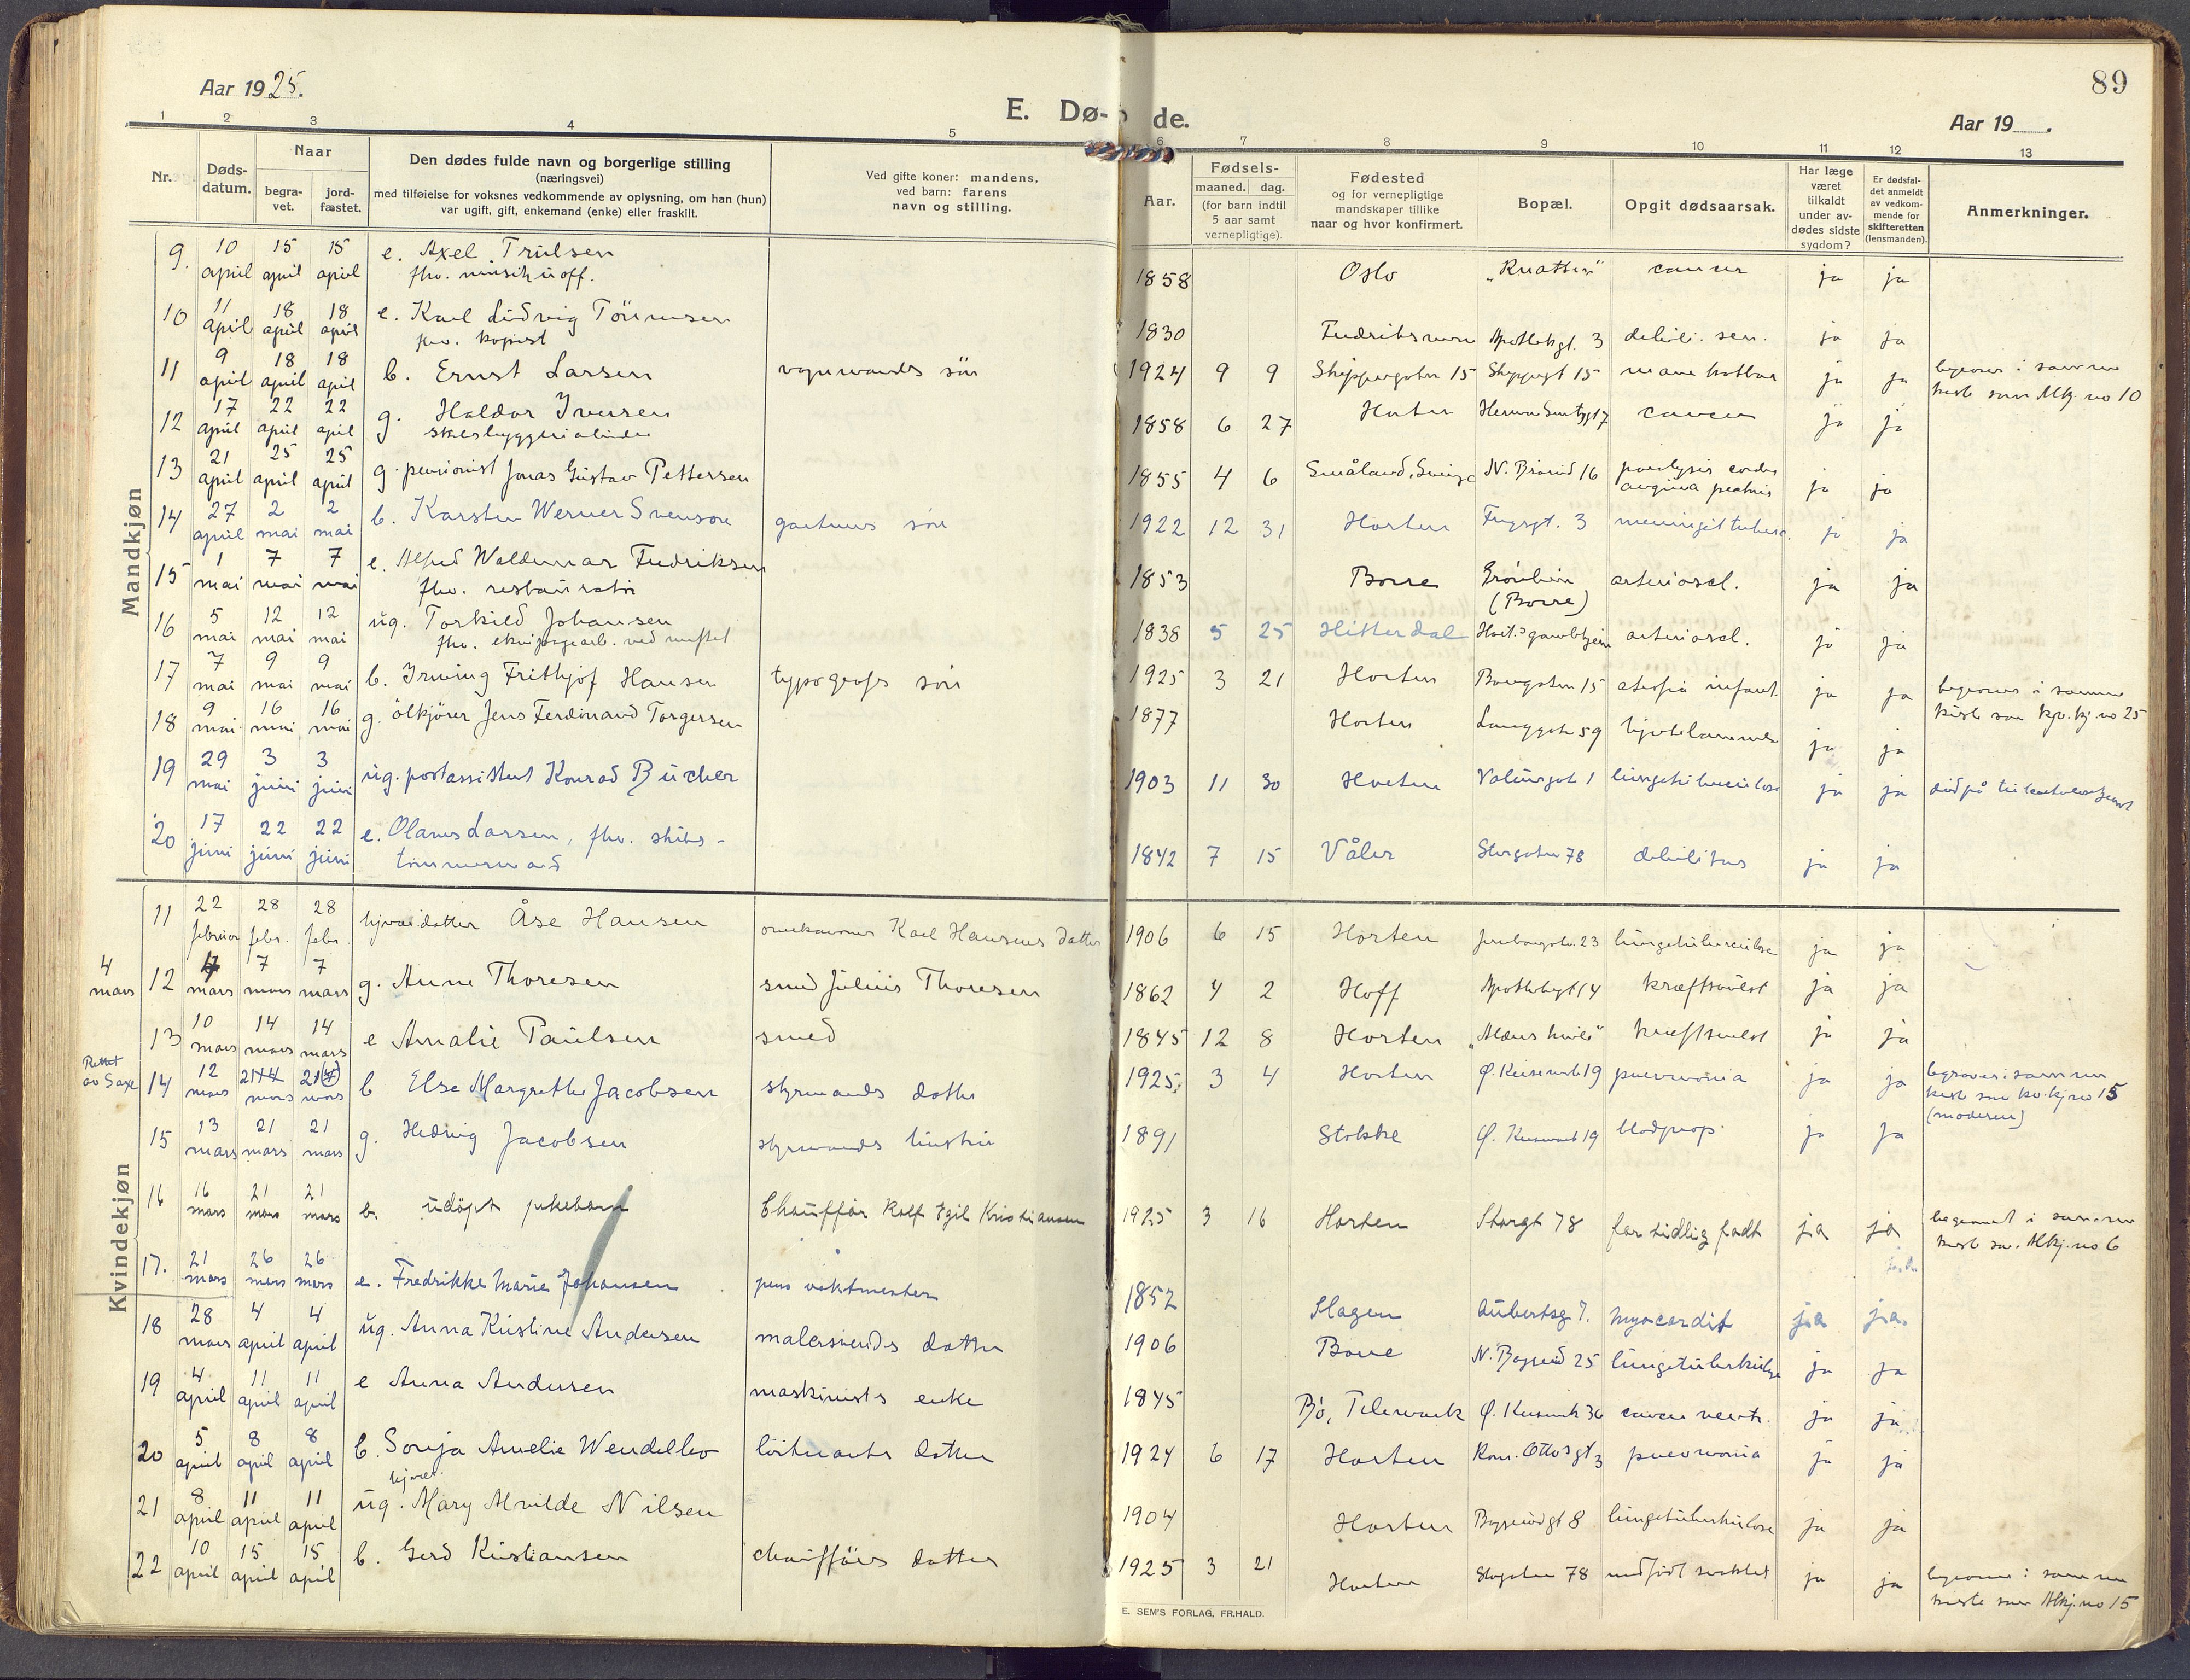 89
Aar 1925.
E. Dø- de.
Aar 19 .
1 2 3 4 5 6 7 8 9 10 11 12 13
Nr.
Døds-
datum.
Naar
begra-
vet.
jord-
fæstet.
Den dødes fulde navn og borgerlige stilling
(næringsvei)
med tilføielse for voksnes vedkommende av oplysning, om han (hun)
var ugift, gift, enkemand (enke) eller fraskilt.
Ved gifte koner: mandens,
ved barn: farens
navn og stilling.
Aar.
Fødsels-
maaned. dag.
(for barn indtil
5 aar samt
vernepligtige).
Fødested
og for vernepligtige
mandskaper tillike
naar og hvor konfirmert.
Bopæl.
Opgit dødsaarsak.
Har læge
været
tilkaldt
under av-
dødes sidste
sygdom?
Er dødsfal-
det anmeldt
av vedkom-
mende for
skifteretten
(lensmanden).
Anmerkninger.
Mandkjøn
9. 10 april 15 april 15 april e. Axel Trulsen 1858 Oslo cancer ja ja
fhv.
10 11 april 18 april 18 april e. Karl Ludvig Tönnesen 1830 Apothekgt. 3 ja ja
fhv. kopist
11 9 april 18 april 18 april b. Ernst Larsen vognmands sön 1924 9 9 Skippergaten 15 Skippergt 15 ja ja begraves i samme
kiste som Mkj. no 10
12 17 april 22 april 22 april g. Haldor Iversen 1858 6 27 Horten cancer ja ja
13 21 april 25 april 25 april g. pensionist Jonas Gustav Pettersen 1855 4 6 Småland, Sverige 16 paralysis cordis ja ja
angina pectoris
14 27 april 2 mai 2 mai b. Karsten Werner Svenson gartners sön 1922 12 31 Horten 3 meningit tuberc. ja ja
15 1 mai 7 mai 7 mai e. Alfred Waldemar Fredriksen 1853 Borre ariosc. ja ja
fhv. restauratör (Borre)
16 5 mai 12 mai 12 mai ug. Torkild Johansen 1838 5 25 Hitterdal Hort. gamlehjem arterioscl. ja ja
fhv. ekvipagearb. ved verftet
17 7 mai 9 mai 9 mai b. Irving Frithjof Hansen typografs sön 1925 3 21 Horten 15 atrofia infant. ja ja begraves i samme
kiste som kv. kj. no 25
18 9 mai 16 mai 16 mai g. ölkjörer Jens Ferdinand Torgersen 1877 Horten Langgaten 59 hjertelammelse ja ja
19 29 mai 3 juni 3 juni ug. postassistent Konrad Bücher 1903 11 30 Horten 1 lungetuberculose ja ja död på
20 17 juni 22 juni 22 juni e. Olaves Larsen, fhv. skibs- 1842 7 15 Våler Storgaten 78 debilitas ja ja
tömmermand
Kvindekjøn
11 22 februar 28 febr. 28 febr. hjvær. datter Åse Hansen Karl Hansens datter 1906 6 15 Horten 23 lungetuberculose ja ja
4 mars 12 mars 7 mars 7 mars g. Anne Thoresen smed Julius Thoresen 1862 4 2 Hoff Apothekgt 14 kræftsvulst ja ja
13 10 mars 14 mars 14 mars e Amalie Paulsen smed 1845 12 8 Horten kræftsvulst ja ja
Rettet
av Saxe 14 12 mars 21 mars 21 mars b Else Margrethe Jacobsen styrmands datter 1925 3 4 Horten 19 pneumonia ja ja begraves i samme
kiste som kv. kj no 15
(moderen)
15 13 mars 21 mars 21 mars g. Hedvig Jacobsen styrmands hustru 1891 Stokke 19 blodprop. ja ja
16 16 mars 21 mars 21 mars b. udöpt pikebarn Chauffør Rolf Egil Kristiansen 1925 3 16 Horten Storgt 78 for tidlig født ja ja begravet i samme
kiste so. Mkj. no 6
17. 21 mars 26 mars 26 mars e. Fredrikke Marie Johansen pens vaktmester 1852 Slagen Aubertsg 7. Myocardit ja ja.
18 28 mars 4 april 4 april ug. Anna Kristine Andersen malersvends datter 1906 Borre 25 lungetuberkulose ja ja
19 4 april 11 april 11 april e Anna Andersen maskinists enke 1845 Bö, Telemark 36 cancer ventr. ja ja
20 5 april 8 april 8 april b. Sonja Amelie Wendelbo löitnants datter 1924 6 17 Horten Kom. Ottos gt 3 pneumonia ja ja
hjvær.
21 8 april 11 april 11 april ug. Mary Alvilde Nilsen 1904 Horten 8 lungetuberkulose ja ja
22 10 april 15 april 15 april b. Gerd Kristiansen chaufförs datter 1925 3 21 Horten Storgaten 78 medfödt svakhet ja ja begraves i samme
kiste som Mkj. no 15
E. SEM'S FORLAG, FR.HALD.